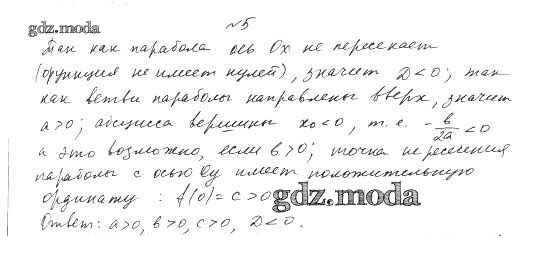 №5
gdz.moda
Так как парабола ось Ox не пересекает
(функция не имеет нулей), значит D<0; так
как ветви параболы направлены вверх, значит
a>0; абсцисса вершины x₀<0, т.е. -b/2a<0
а это возможно, если b>0; точка пересечения
параболы с осью Oy имеет положительную
ординату: f(0)=c>0
gdz.moda
Ответ: a>0, b>0, c>0, D<0.